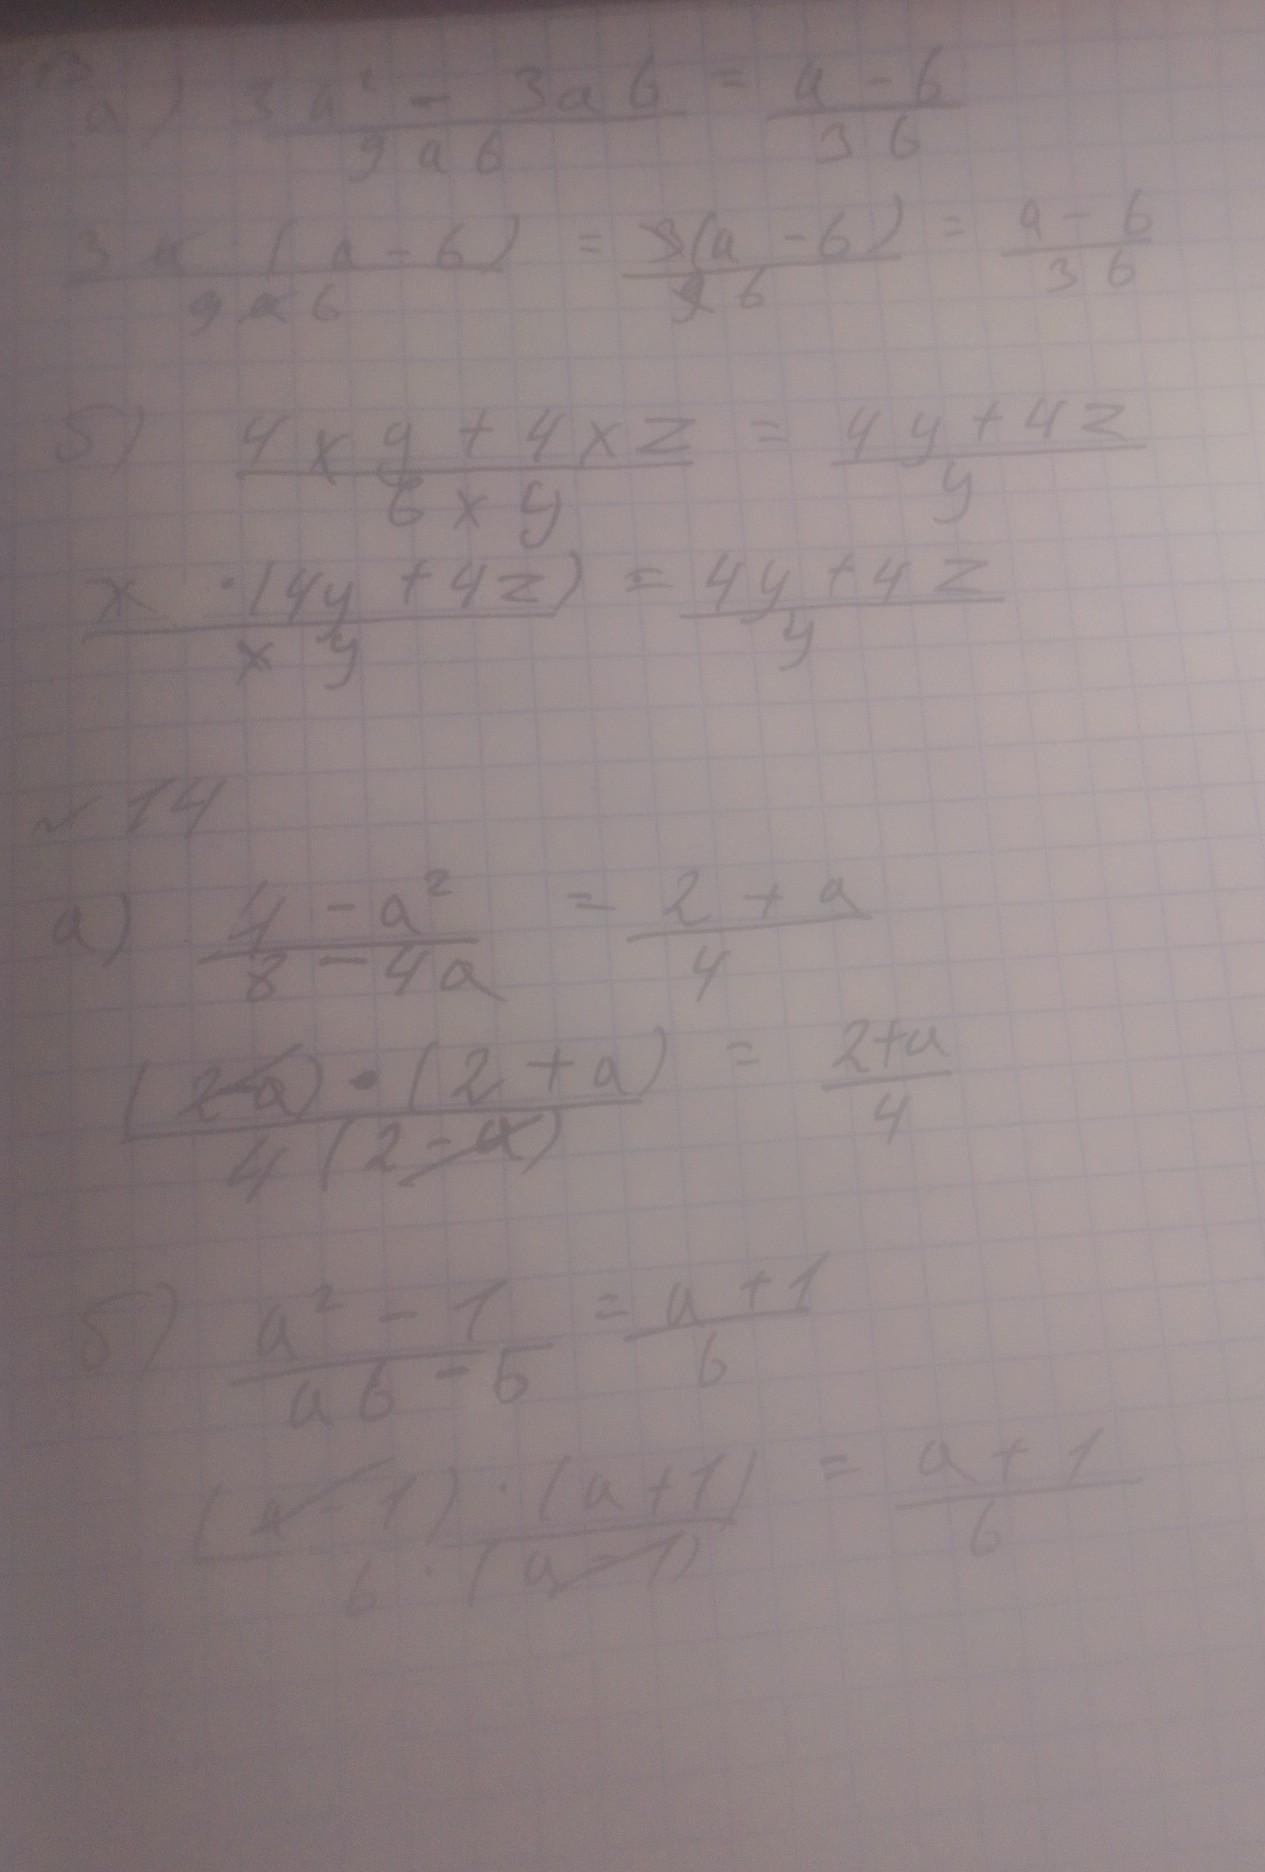 а) (3a² - 3ab)/(9ab) = (a - b)/(3b)
(3a · (a - b))/(9ab) = (3(a - b))/(9b) = (a - b)/(3b)
б) (4xy + 4xz)/(6xy) = (4y + 4z)/y
(x · (4y + 4z))/(xy) = (4y + 4z)/y
№14
а) (4 - a²)/(8 - 4a) = (2 + a)/4
((2-a) · (2 + a))/(4(2 - a)) = (2+a)/4
б) (a² - 1)/(ab - b) = (a + 1)/b
((a - 1) · (a + 1))/(b · (a - 1)) = (a + 1)/b